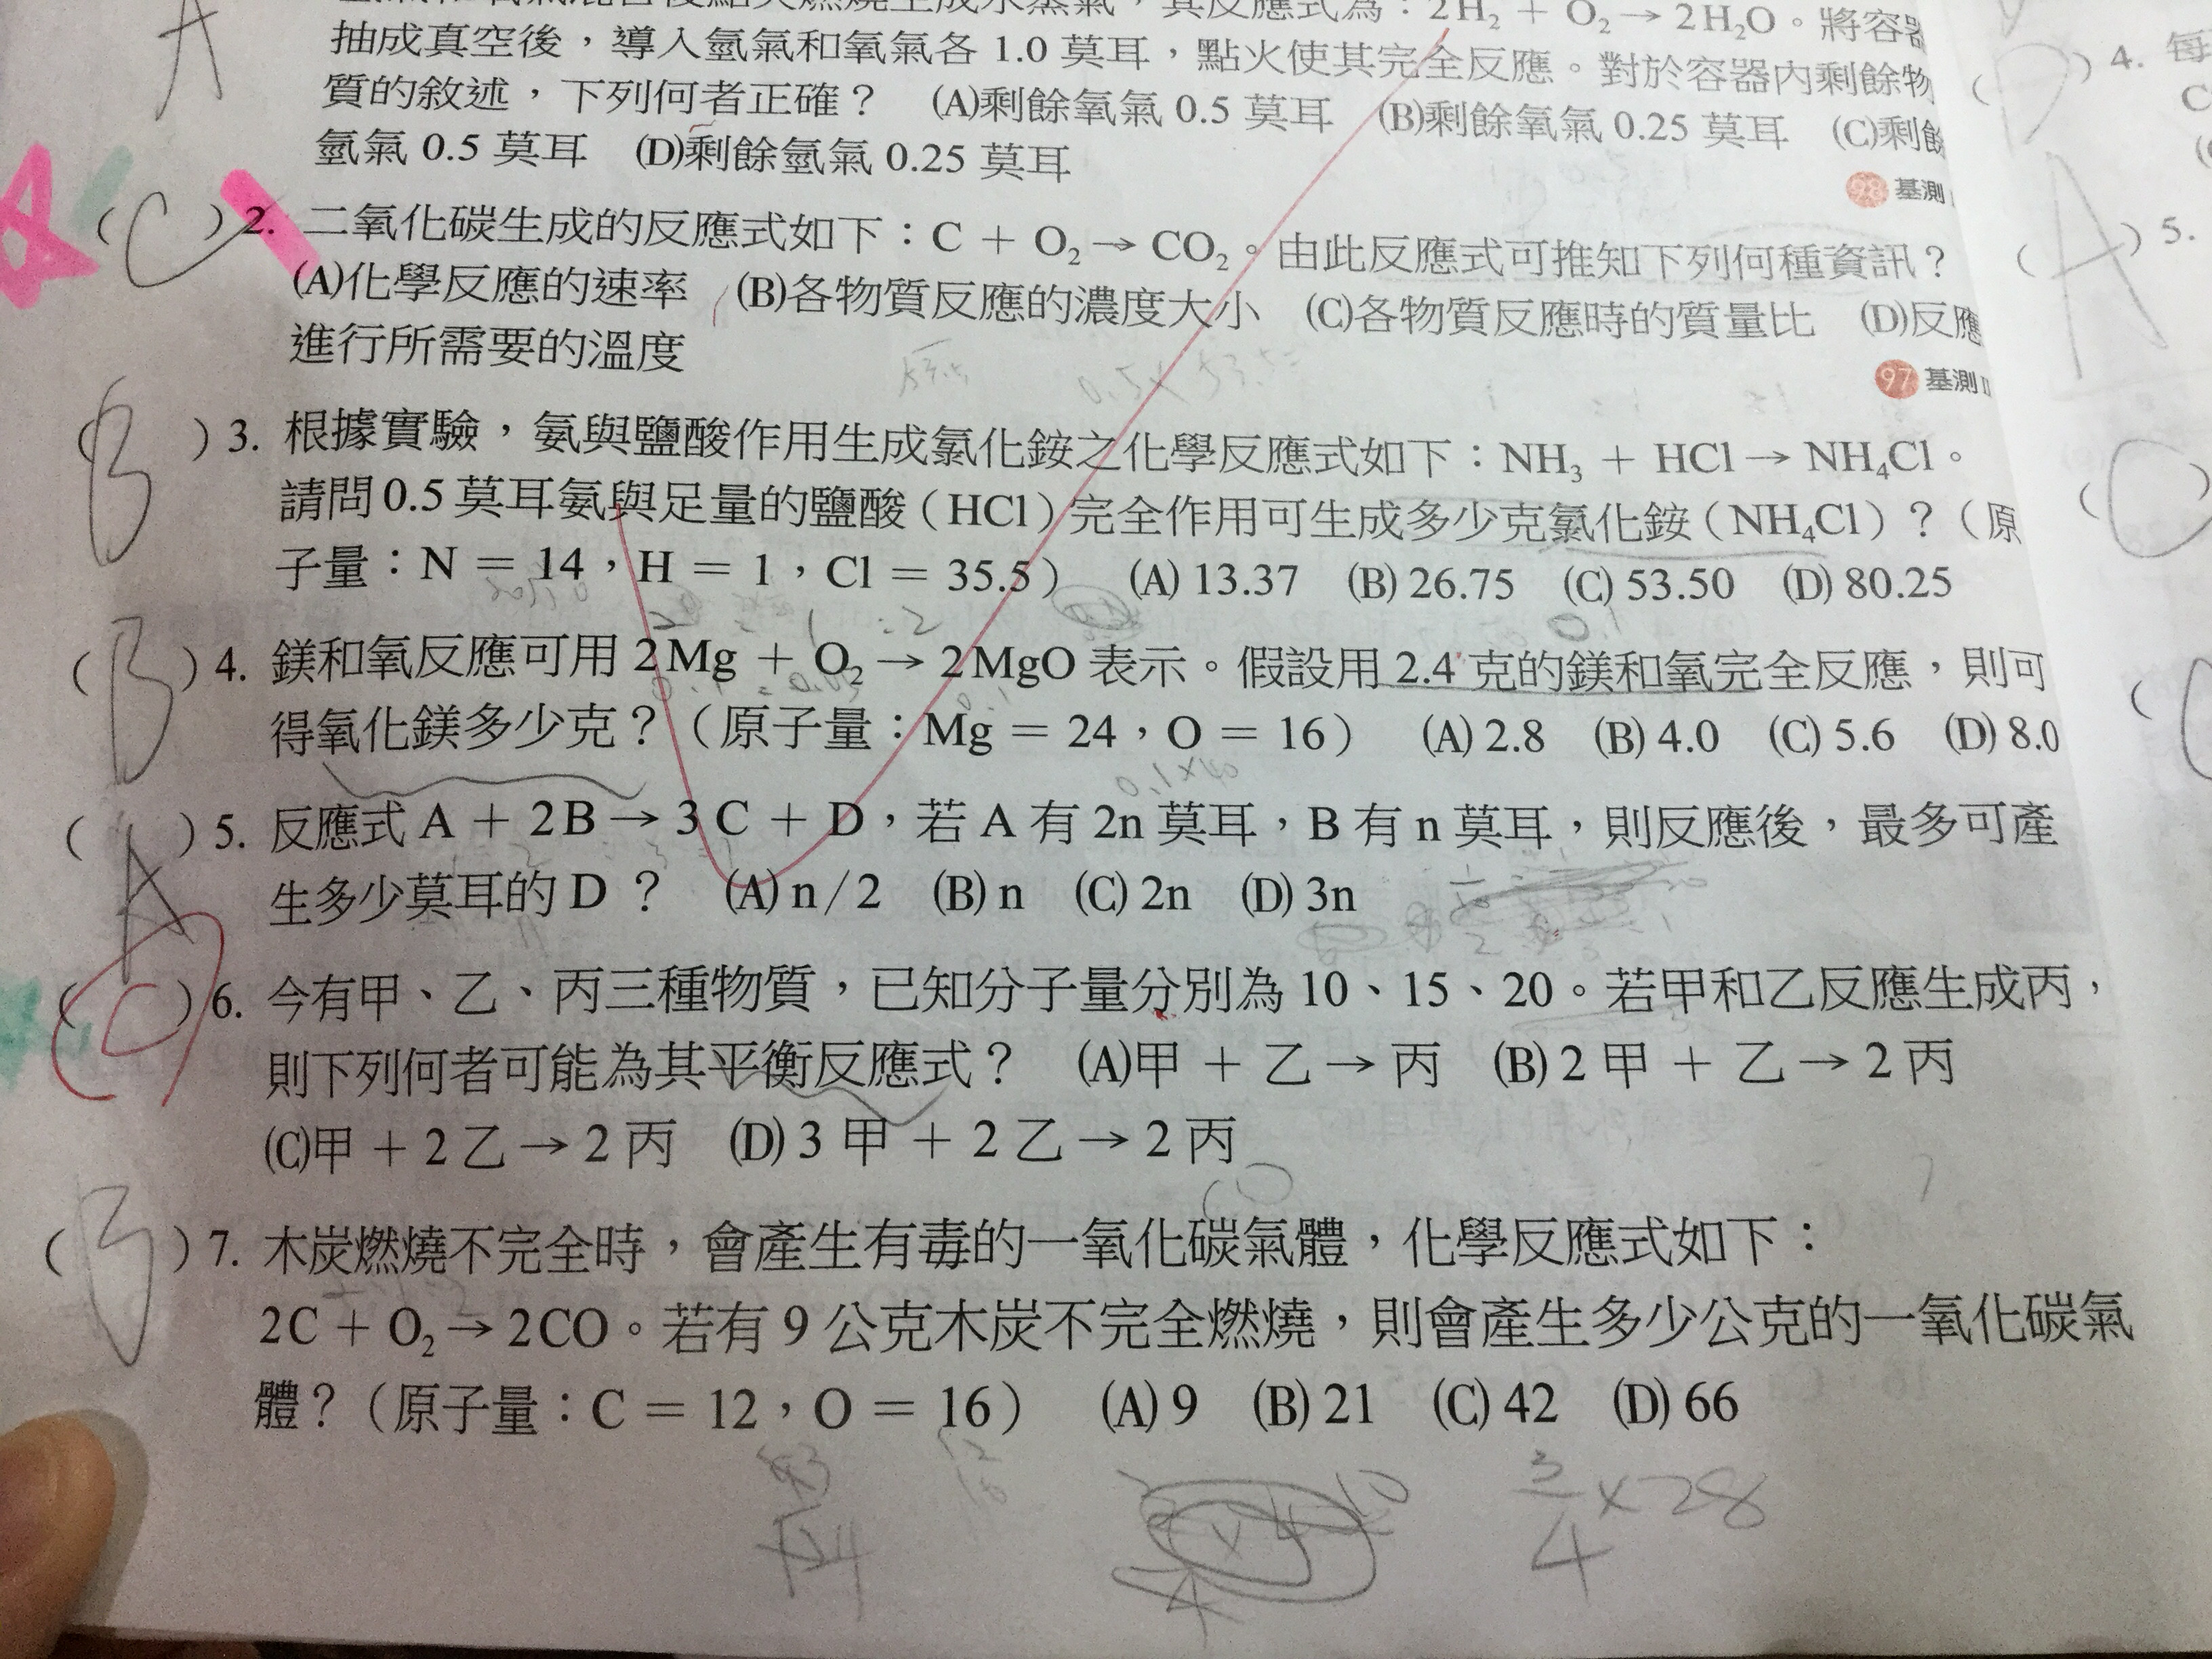 2H₂ + O₂ → 2H₂O。將容器
A
抽成真空後，導入氫氣和氧氣各 1.0 莫耳，點火使其完全反應。對於容器內剩餘物
質的敘述，下列何者正確？ (A)剩餘氧氣 0.5 莫耳 (B)剩餘氧氣 0.25 莫耳 (C)剩餘
氫氣 0.5 莫耳 (D)剩餘氫氣 0.25 莫耳
98 基測
( C ) 2. 二氧化碳生成的反應式如下：C + O₂ → CO₂。由此反應式可推知下列何種資訊？
(A)化學反應的速率 (B)各物質反應的濃度大小 (C)各物質反應時的質量比 (D)反應
進行所需要的溫度
97 基測 II
53.5
0.5 × 53.5 =
( B ) 3. 根據實驗，氨與鹽酸作用生成氯化銨之化學反應式如下：NH₃ + HCl → NH₄Cl。
請問 0.5 莫耳氨與足量的鹽酸（HCl）完全作用可生成多少克氯化銨（NH₄Cl）？（原
子量：N = 14，H = 1，Cl = 35.5） (A) 13.37 (B) 26.75 (C) 53.50 (D) 80.25
2 : 1 : 2
0.1
( B ) 4. 鎂和氧反應可用 2Mg + O₂ → 2MgO 表示。假設用 2.4 克的鎂和氧完全反應，則可
得氧化鎂多少克？（原子量：Mg = 24，O = 16） (A) 2.8 (B) 4.0 (C) 5.6 (D) 8.0
0.1 × 40
( A ) 5. 反應式 A + 2B → 3C + D，若 A 有 2n 莫耳，B 有 n 莫耳，則反應後，最多可產
生多少莫耳的 D？ (A) n/2 (B) n (C) 2n (D) 3n
( C ) 6. 今有甲、乙、丙三種物質，已知分子量分別為 10、15、20。若甲和乙反應生成丙，
則下列何者可能為其平衡反應式？ (A)甲 + 乙 → 丙 (B) 2 甲 + 乙 → 2 丙
(C)甲 + 2 乙 → 2 丙 (D) 3 甲 + 2 乙 → 2 丙
( B ) 7. 木炭燃燒不完全時，會產生有毒的一氧化碳氣體，化學反應式如下：
2C + O₂ → 2CO。若有 9 公克木炭不完全燃燒，則會產生多少公克的一氧化碳氣
體？（原子量：C = 12，O = 16） (A) 9 (B) 21 (C) 42 (D) 66
12
16
3/4 × 28
4. 每
A
5.